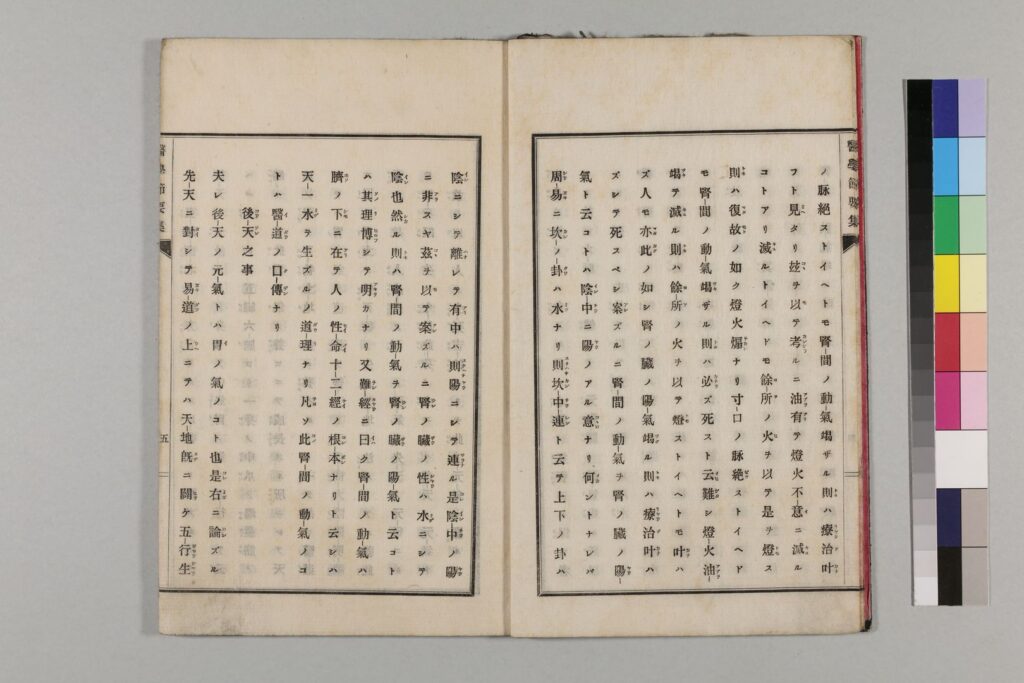 醫學節要集
ノ脉絶ストイヘトモ腎間ノ動氣竭ザル則ハ療治叶
フト見タリ玆ヲ以テ考ルニ油有テ燈火不意ニ滅ル
コトアリ滅ルトイヘドモ餘所ノ火ヲ以テ是ヲ燈ス
則ハ復故ノ如ク燈火煽ナリ寸口ノ脉絶ストイヘド
モ腎間ノ動氣竭ザル則ハ必ズ死スト云難シ燈火油
竭テ滅ル則ハ餘所ノ火ヲ以テ燈ストイヘトモ叶ハ
ズ人モ亦此ノ如シ腎ノ臟ノ陽氣竭ル則ハ療治叶ハ
ズシテ死スベシ案ズルニ腎間ノ動氣ヲ腎ノ臟ノ陽
氣ト云コトハ陰中ニ陽ノアル意ナリ何ントナレバ
周易ニ坎ノ卦ハ水ナリ則坎中連ト云テ上下ノ卦ハ
陰ニシテ離レテ有中ハ則陽ニシテ連ル是陰中ノ陽
ニ非スヤ茲ヲ以テ案ズルニ腎ノ臟ノ性ハ水ニシテ
陰也然ル則ハ腎間ノ動氣ヲ腎ノ臟ノ陽氣ト云コト
ハ其理博シテ明カナリ又難經ニ曰ク腎間ノ動氣ハ
臍ノ下ニ在テ人ノ性命十二經ノ根本ナリト云シハ
天一水ヲ生ズルノ道理ナリ凡ソ此腎間ノ動氣ノコ
トハ醫道ノ口傳ナリ
後天之事
夫レ後天ノ元氣トハ胃ノ氣ノコト也是右ニ論ズル
先天ニ對シテ易道ノ上ニテハ天地旣ニ闢ケ五行生
醫學節要集
五